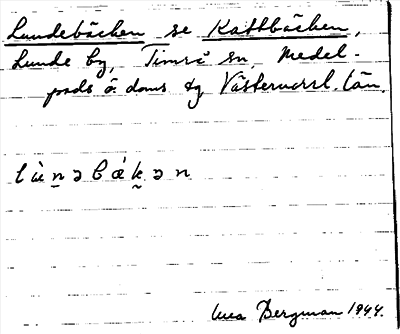 Lundebäcken se Kattbäcken,
Lunde by, Timrå sn, Medel-
pads ö. doms. tg Västernorrl. län.
lùn̠əbǽk̬ən
Bergman 1944.